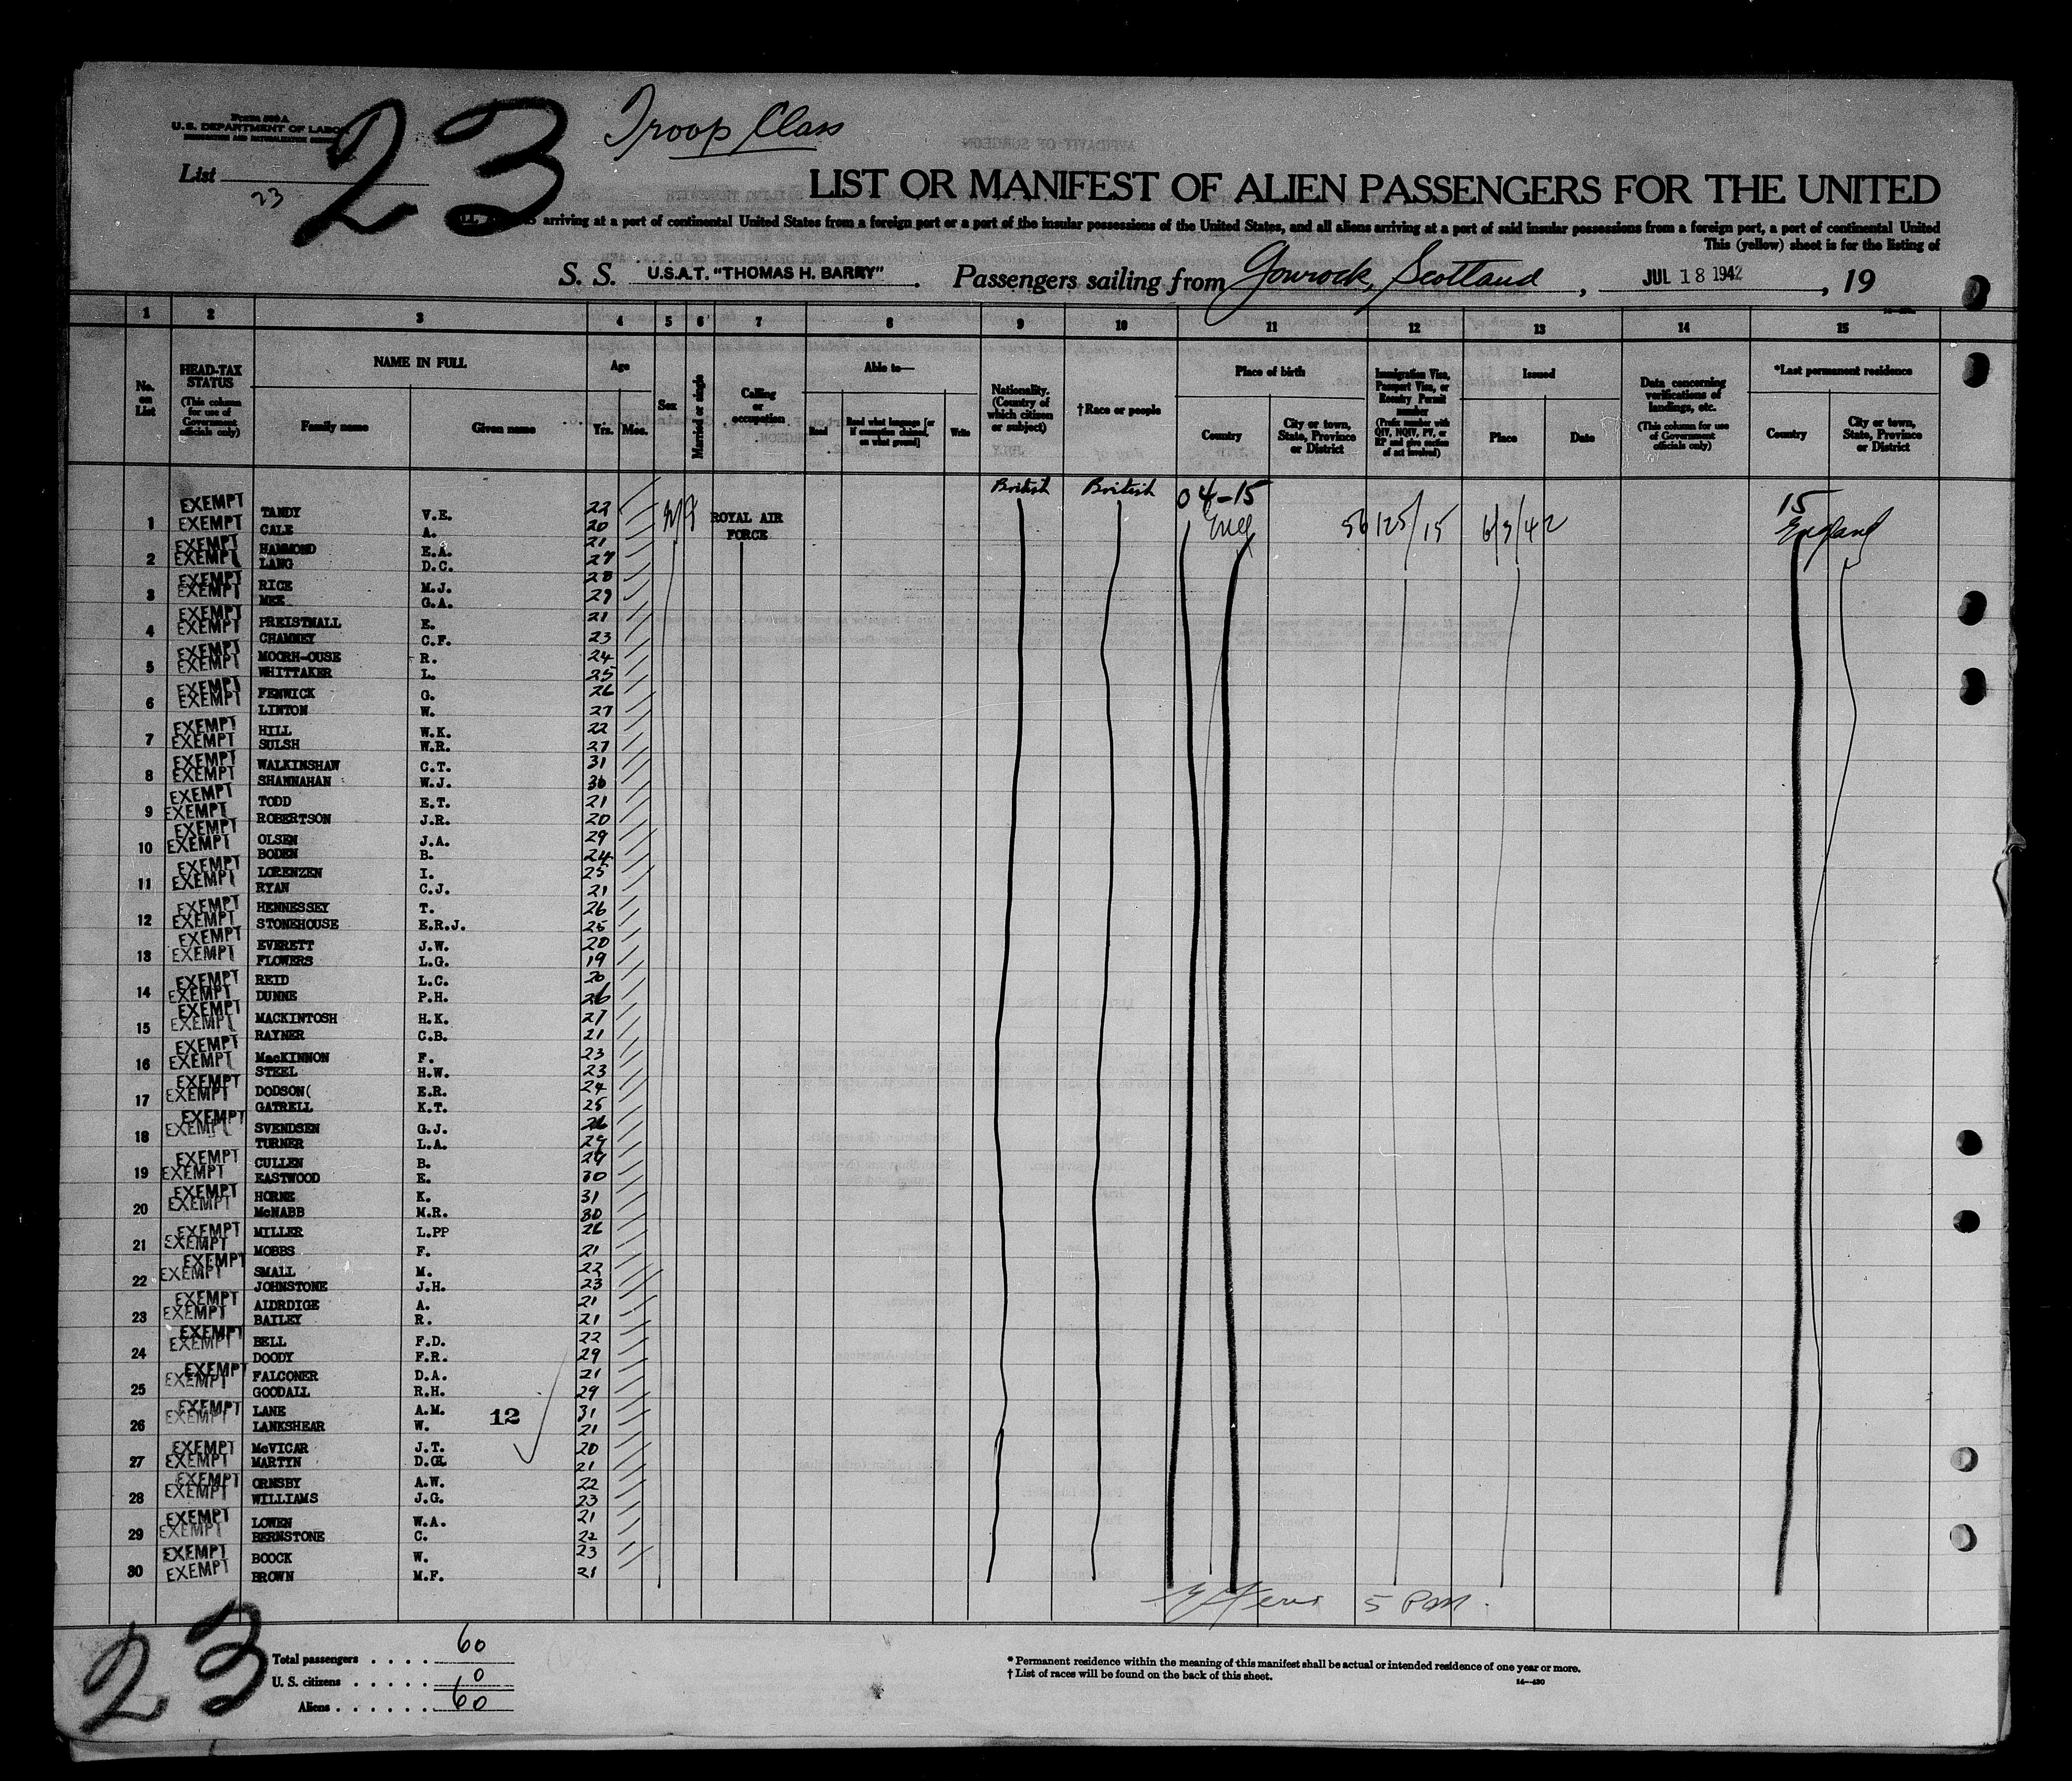 Form 500 A
U. S. DEPARTMENT OF LABOR
IMMIGRATION AND NATURALIZATION SERVICE
23
Troop Class
List 23
LIST OR MANIFEST OF ALIEN PASSENGERS FOR THE UNITED
arriving at a port of continental United States from a foreign port or a port of the insular possessions of the United States, and all aliens arriving at a port of said insular possessions from a foreign port, a port of continental United
This (yellow) sheet is for the listing of
S. S. U.S.A.T. "THOMAS H. BARRY". Passengers sailing from Gourock, Scotland, JUL 18 1942, 19
1 2 3 4 5 6 7 8 9 10 11 12 13 14 15
No. on List
HEAD-TAX STATUS (This column for use of Government officials only)
NAME IN FULL
Family name Given name
Age
Yrs. Mos.
Sex
Married or single
Calling or occupation
Able to—
Read Read what language [or if exemption claimed, on what ground] Write
Nationality. (Country of which citizen or subject)
†Race or people
Place of birth
Country City or town, State, Province or District
Immigration Visa, Passport Visa, or Reentry Permit number (Prefix number with QIV, NQIV, PV, or RP and give section of act involved)
Issued
Place Date
Data concerning verifications of landings, etc. (This column for use of Government officials only)
*Last permanent residence
Country City or town, State, Province or District
British British 04-15 15
EXEMPT TANDY V.E. 22
1 EXEMPT CALE A. 20 ROYAL AIR FORCE Eng 56125/15 6/3/42 England
EXEMPT HAMMOND E.A. 21
2 EXEMPT LANG D.C. 27
EXEMPT RICE M.J. 28
3 EXEMPT MEE G.A. 29
EXEMPT PREISTNALL E. 21
4 EXEMPT CHAMNEY C.F. 23
EXEMPT MOORH-OUSE R. 24
5 EXEMPT WHITTAKER L. 25
EXEMPT FENWICK G. 26
6 EXEMPT LINTON W. 27
EXEMPT HILL W.K. 22
7 EXEMPT SULSH W.R. 27
EXEMPT WALKINSHAW C.T. 31
8 EXEMPT SHANNAHAN W.J. 30
EXEMPT TODD E.T. 21
9 EXEMPT ROBERTSON J.R. 20
EXEMPT OLSEN J.A. 29
10 EXEMPT BODEN B. 24
EXEMPT LORENZEN I. 25
11 EXEMPT RYAN C.J. 21
EXEMPT HENNESSEY T. 26
12 EXEMPT STONEHOUSE E.R.J. 25
EXEMPT EVERETT J.W. 20
13 EXEMPT FLOWERS L.G. 19
EXEMPT REID L.C. 20
14 EXEMPT DUNNE P.H. 26
EXEMPT MACKINTOSH H.K. 27
15 EXEMPT RAYNER C.B. 21
EXEMPT MacKINNON F. 23
16 EXEMPT STEEL H.W. 23
EXEMPT DODSON( E.R. 24
17 EXEMPT GATRELL K.T. 25
EXEMPT SVENDSEN G.J. 26
18 EXEMPT TURNER L.A. 29
EXEMPT CULLEN B. 29
19 EXEMPT EASTWOOD E. 30
EXEMPT HORNE K. 31
20 EXEMPT McNABB M.R. 30
EXEMPT MILLER L.PP 26
21 EXEMPT MOBBS F. 21
EXEMPT SMALL M. 22
22 EXEMPT JOHNSTONE J.H. 23
EXEMPT AIDRDIGE A. 21
23 EXEMPT BAILEY R. 21
EXEMPT BELL F.D. 22
24 EXEMPT DOODY F.R. 29
EXEMPT FALCONER D.A. 21
25 EXEMPT GOODALL R.H. 29
EXEMPT LANE A.M. 12 31
26 EXEMPT LANKSHEAR W. 21
EXEMPT McVICAR J.T. 20
27 EXEMPT MARTYN D.GL 21
EXEMPT ORMSBY A.W. 22
28 EXEMPT WILLIAMS J.G. 23
EXEMPT LOWEN W.A. 21
29 EXEMPT BERNSTONE C. 22
EXEMPT BOOCK W. 23
30 EXEMPT BROWN M.F. 21
5 PM.
23
Total passengers . . . . 60
U. S. citizens . . . . . 0
Aliens . . . . . . 60
* Permanent residence within the meaning of this manifest shall be actual or intended residence of one year or more.
† List of races will be found on the back of this sheet.
14—430